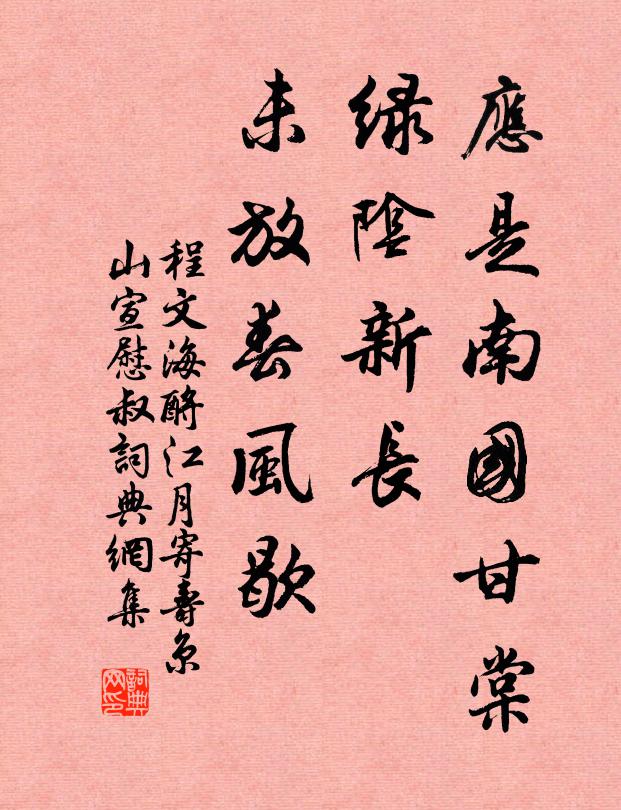 應是南國甘棠
緑陰新長
未放春風歇
程文海酹江月寄壽京
山宣慰叔詞典網集
詞典
网印